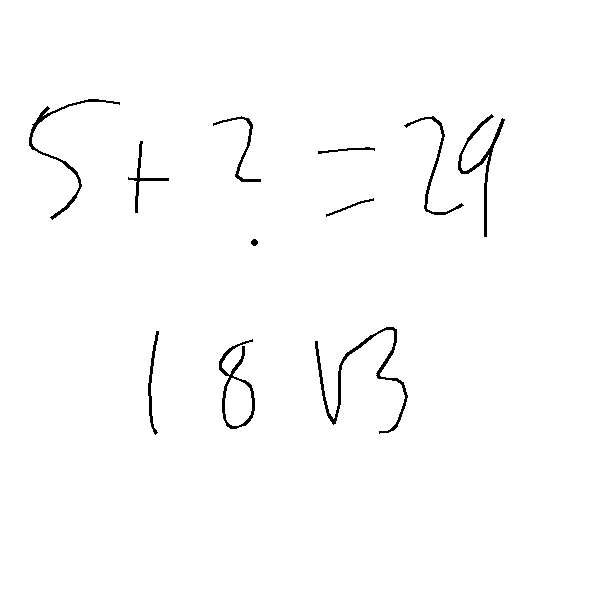 5 + ? = 29
1 8 √3